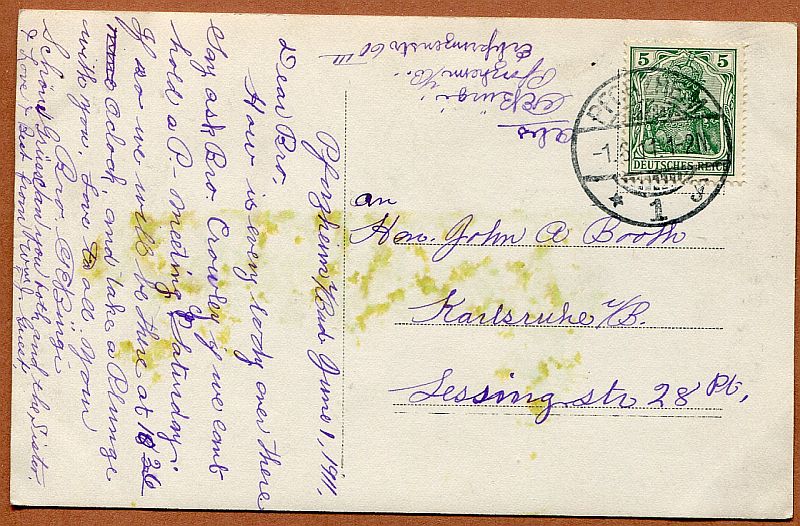 Pforzheim i/Bad. June 1, 1911.
Dear Bro.
How is every body over there
Say ask Bro. Crowley if we cant
hold a P- meeting Saturday.
If so we will be there at
Oclock, and take a Plunge
with you. Love to all from
Bro.
Schöne Grüsse an you both and the Sister.
& Love & Best from
Abs
Pforzheim i/B.
60 III
5 5
DEUTSCHES REICH
PFORZHEIM
1
an
Hon. John A Booth
Karlsruhe i/B.
Lessing str 28 Pt.